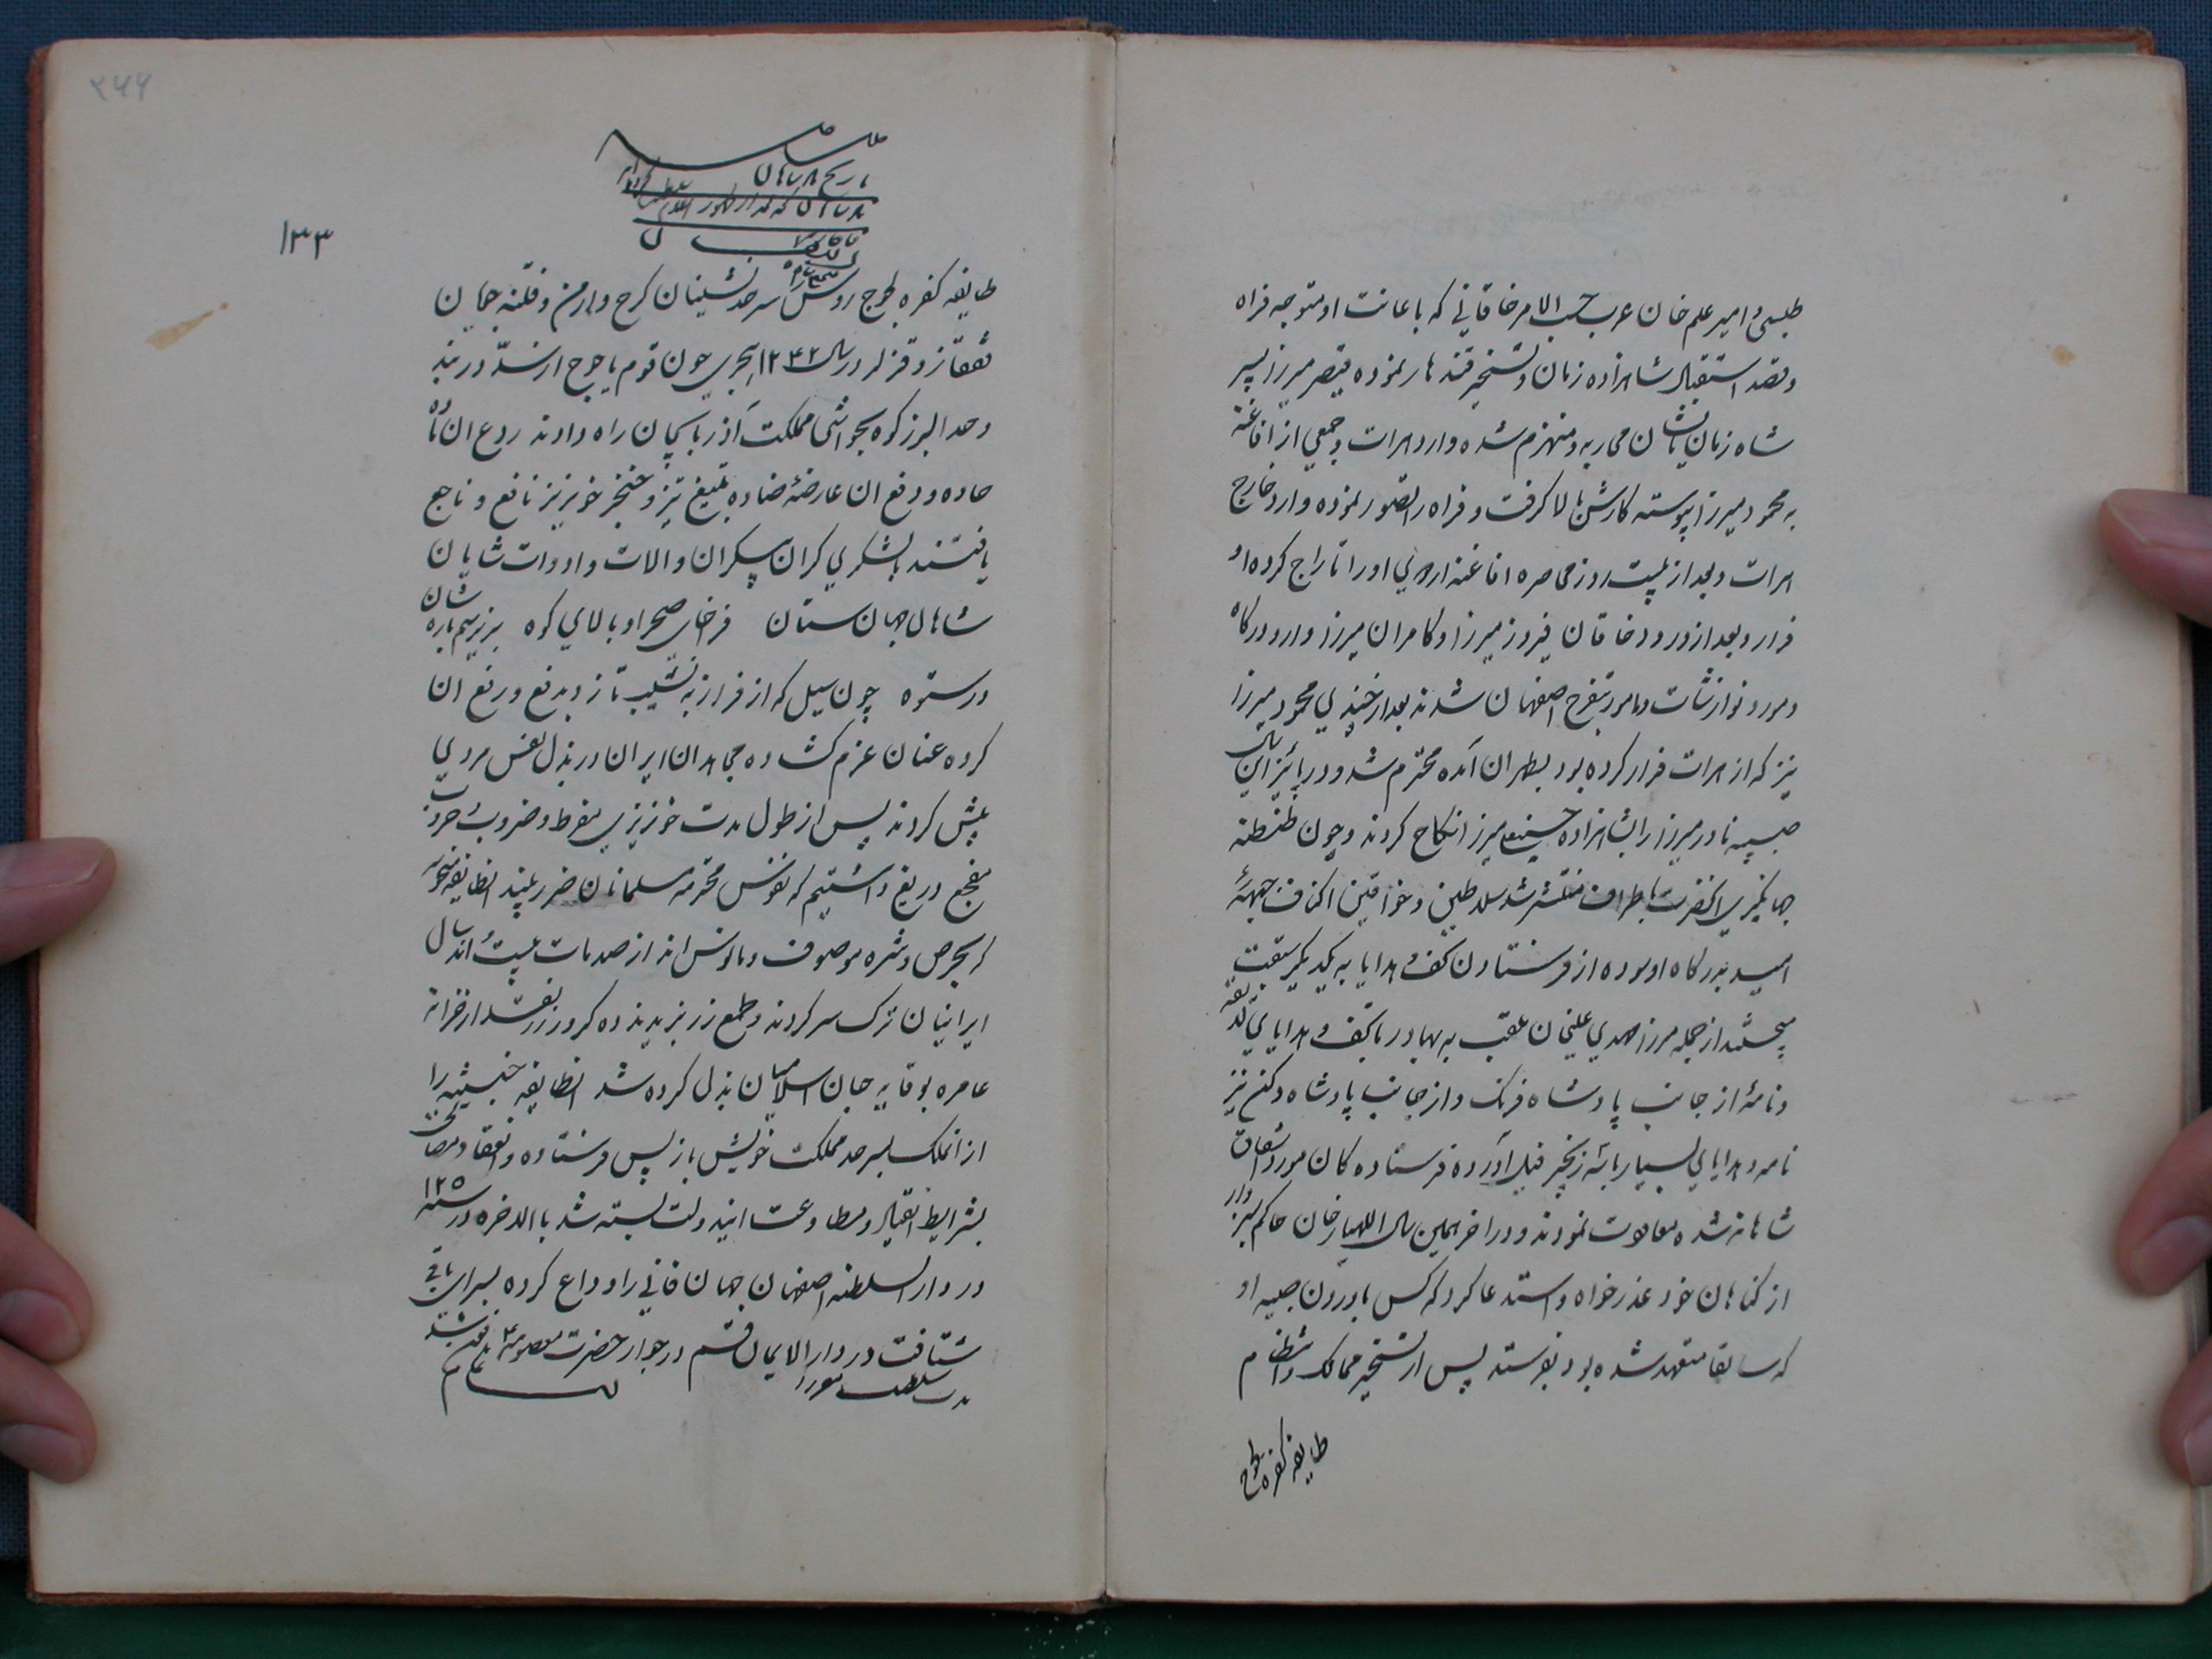 طبسی و امیر علم خان عرب حسب الامر خاقانی که باعانت او متوجه فراه
وقصد استقبال شاهزاده زمان و تسخیر قندهار نموده قیصر میرزا پسر
شاه زمان بایشان محاربه و منهزم شده وارد هرات و جمعی از افاغنه
به محمود میرزا پیوسته کارش بالا گرفت و فراه را تصور نموده وارد خارج
هرات و بعد از بیست روز محاصره افاغنه اردوی او را تاراج کرده او
فرار و بعد از ورود خاقان فیروز میرزا و کامران میرزا وارد درگاه
ومورد نوازشات و مامور بتفرج اصفهان شدند بعد از چندی محمود میرزا
نیز که از هرات فرار کرده بود بطهران آمده محترم شد و در پائیز این سال
صبیه نادر میرزا را بشاهزاده حسینعلی میرزا نکاح کردند و چون طنطنه
جهانگیری انحضرت باطراف منتشر شد سلاطین و خواقین اکناف جبهۀ
امید بدرگاه او سوده از فرستادن تحف و هدایا به یکدیگر سبقت
میجستند از جمله مرزا مهدی علیخان ملقب به بهادر با تحف و هدایای لایقه
ونامۀ از جانب پادشاه فرنک و از جانب پادشاه دکن نیز
نامه و هدایای بسیار با سه زنجیر فیل آورده فرستاده کان مورد اشفاق
شاهانه شده معاودت نمودند و در اخر همین سال اللهیار خان حاکم سبزوار
از کناهان خود عذر خواه و استدعا کرد که کس باوردن صبیه او
که سابقا متعهد شده بود بفرستد پس از تسخیر ممالک و انتظام
طایفه کفره لجوج
۲۶۶
۱۳۳
طایفه کفره لجوج روس سرحد نشینان کرج و ارمن و فتنه جویان
قفقاز و قزلر در سال ۱۲۴۲ هجری چون قوم یاجوج از سدّ دربند
وحد البرز کوه بحواشی مملکت آذربایجان راه دادند ردع ان ماده
حاده و دفع ان عارضۀ مضاده بتیغ تیز و خنجر خونریز نافع و ناجع
یافتند بلشکری کران بیکران و الات و ادوات شایان
شاهان جهان ستان فرخای صحرا و بالای کوه بزیر سم باره شان
در ستوه چون سیل که از فراز به نشیب تازد بدفع و رفع ان
کرده عنان عزم کشاده مجاهدان ایران در بذل نفس مردی
پیش کردند پس از طول مدت خونریزی مفرط و ضروب و حروب
مفجع دریغ داشتیم که نفوس محترمه مسلمانان ضرر بیند انطایفه منحوسه
که بحرص و شره موصوف و مانوس اند از صدمات بیست و اند سال
ایرانیان ترک سر کردند و طمع زر نبریدند ده کرور زر نقد از خزانه
عامره بوقایه جان اسلامیان بذل کرده شد انطایفه خبیثه را
از انملک بسرحد مملکت خویش باز پس فرستاده و انعقاد مصالحت
بشرایط انقیاد و مطاوعت ایندولت بسته شد بالاخره در سنه ۱۲۵
در دار السلطنه اصفهان جهان فانی را وداع کرده بسرای باقی
شتافت در دار الایمان قم در جوار حضرت معصومه ع مدفون شد
مدت سلطنت